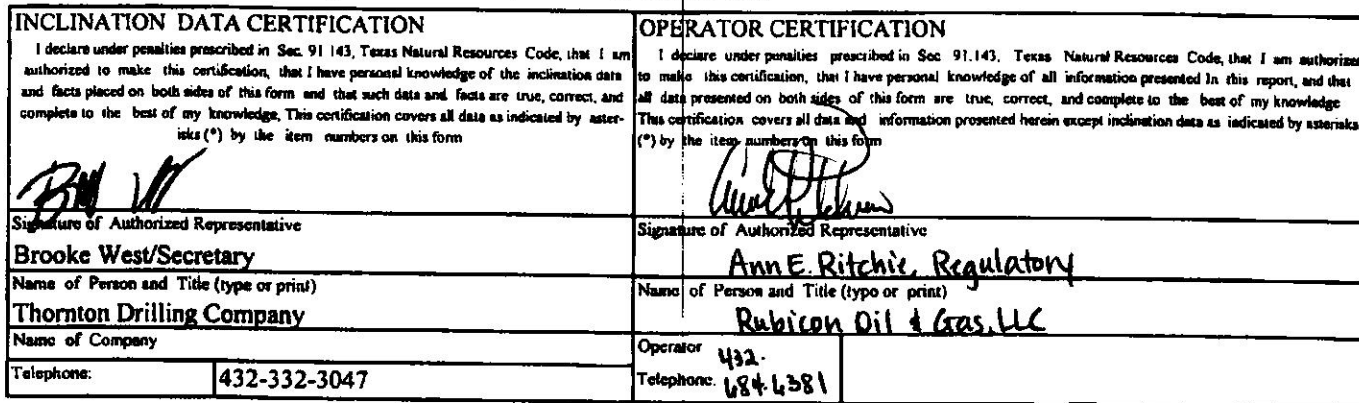 INCLINATION DATA CERTIFICATION
I declare under penalties prescribed in Sec. 91 143, Texas Natural Resources Code, that I am
authorized to make this certification, that I have personal knowledge of the inclination data
and facts placed on both sides of this form and that such data and facts are true, correct, and
complete to the best of my knowledge. This certification covers all data as indicated by aster-
isks (*) by the item numbers on this form
Signature of Authorized Representative
Brooke West/Secretary
Name of Person and Title (type or print)
Thornton Drilling Company
Name of Company
Telephone: 432-332-3047
OPERATOR CERTIFICATION
I declare under penalties prescribed in Sec 91.143, Texas Natural Resources Code, that I am authorized
to make this certification, that I have personal knowledge of all information presented In this report, and that
all data presented on both sides of this form are true, correct, and complete to the best of my knowledge
This certification covers all data and information presented herein except inclination data as indicated by asterisks
(*) by the item numbers on this form
Signature of Authorized Representative
Ann E. Ritchie, Regulatory
Name of Person and Title (type or print)
Rubicon Oil & Gas, LLC
Operator 432.
Telephone. 684.6381